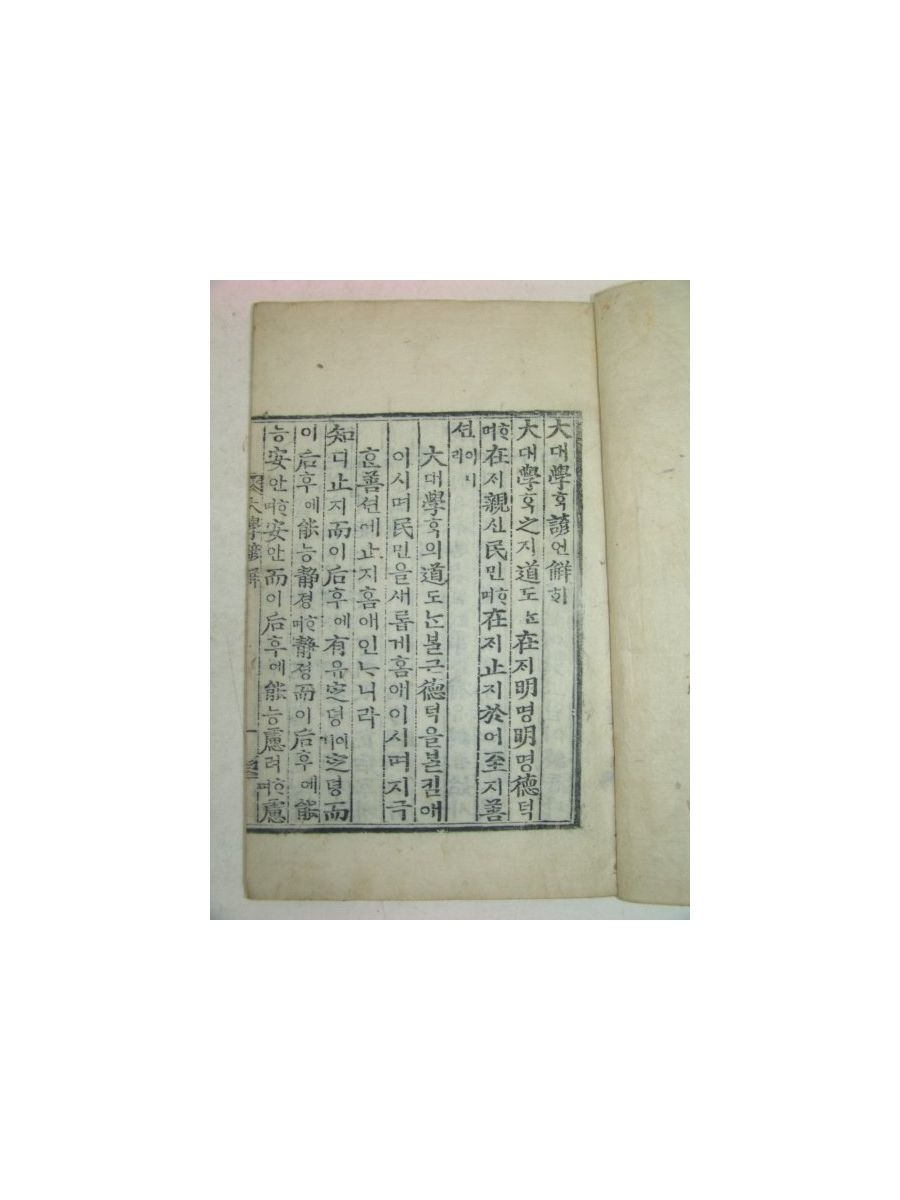 大대學ᄒᆞᆨ諺언解ᄒᆡ
大대學ᄒᆞᆨ之지道도ᄂᆞᆫ在ᄌᆡ明명明명德덕
ᄒᆞ며在ᄌᆡ親신民민ᄒᆞ며在ᄌᆡ止지於어至지善
션이니라
大대學ᄒᆞᆨ의道도ᄂᆞᆫᄇᆞᆯ근德덕을ᄇᆞᆯ킴애
이시며民민을새롭게홈애이시며지극
ᄒᆞᆫ善션에止지홈애인ᄂᆞ니라
知디止지而이后후에有유定뎡이니定뎡而
이后후에能능靜졍ᄒᆞ며靜졍而이后후에能
능安안ᄒᆞ며安안而이后후에能능慮려ᄒᆞ며慮
大學諺解